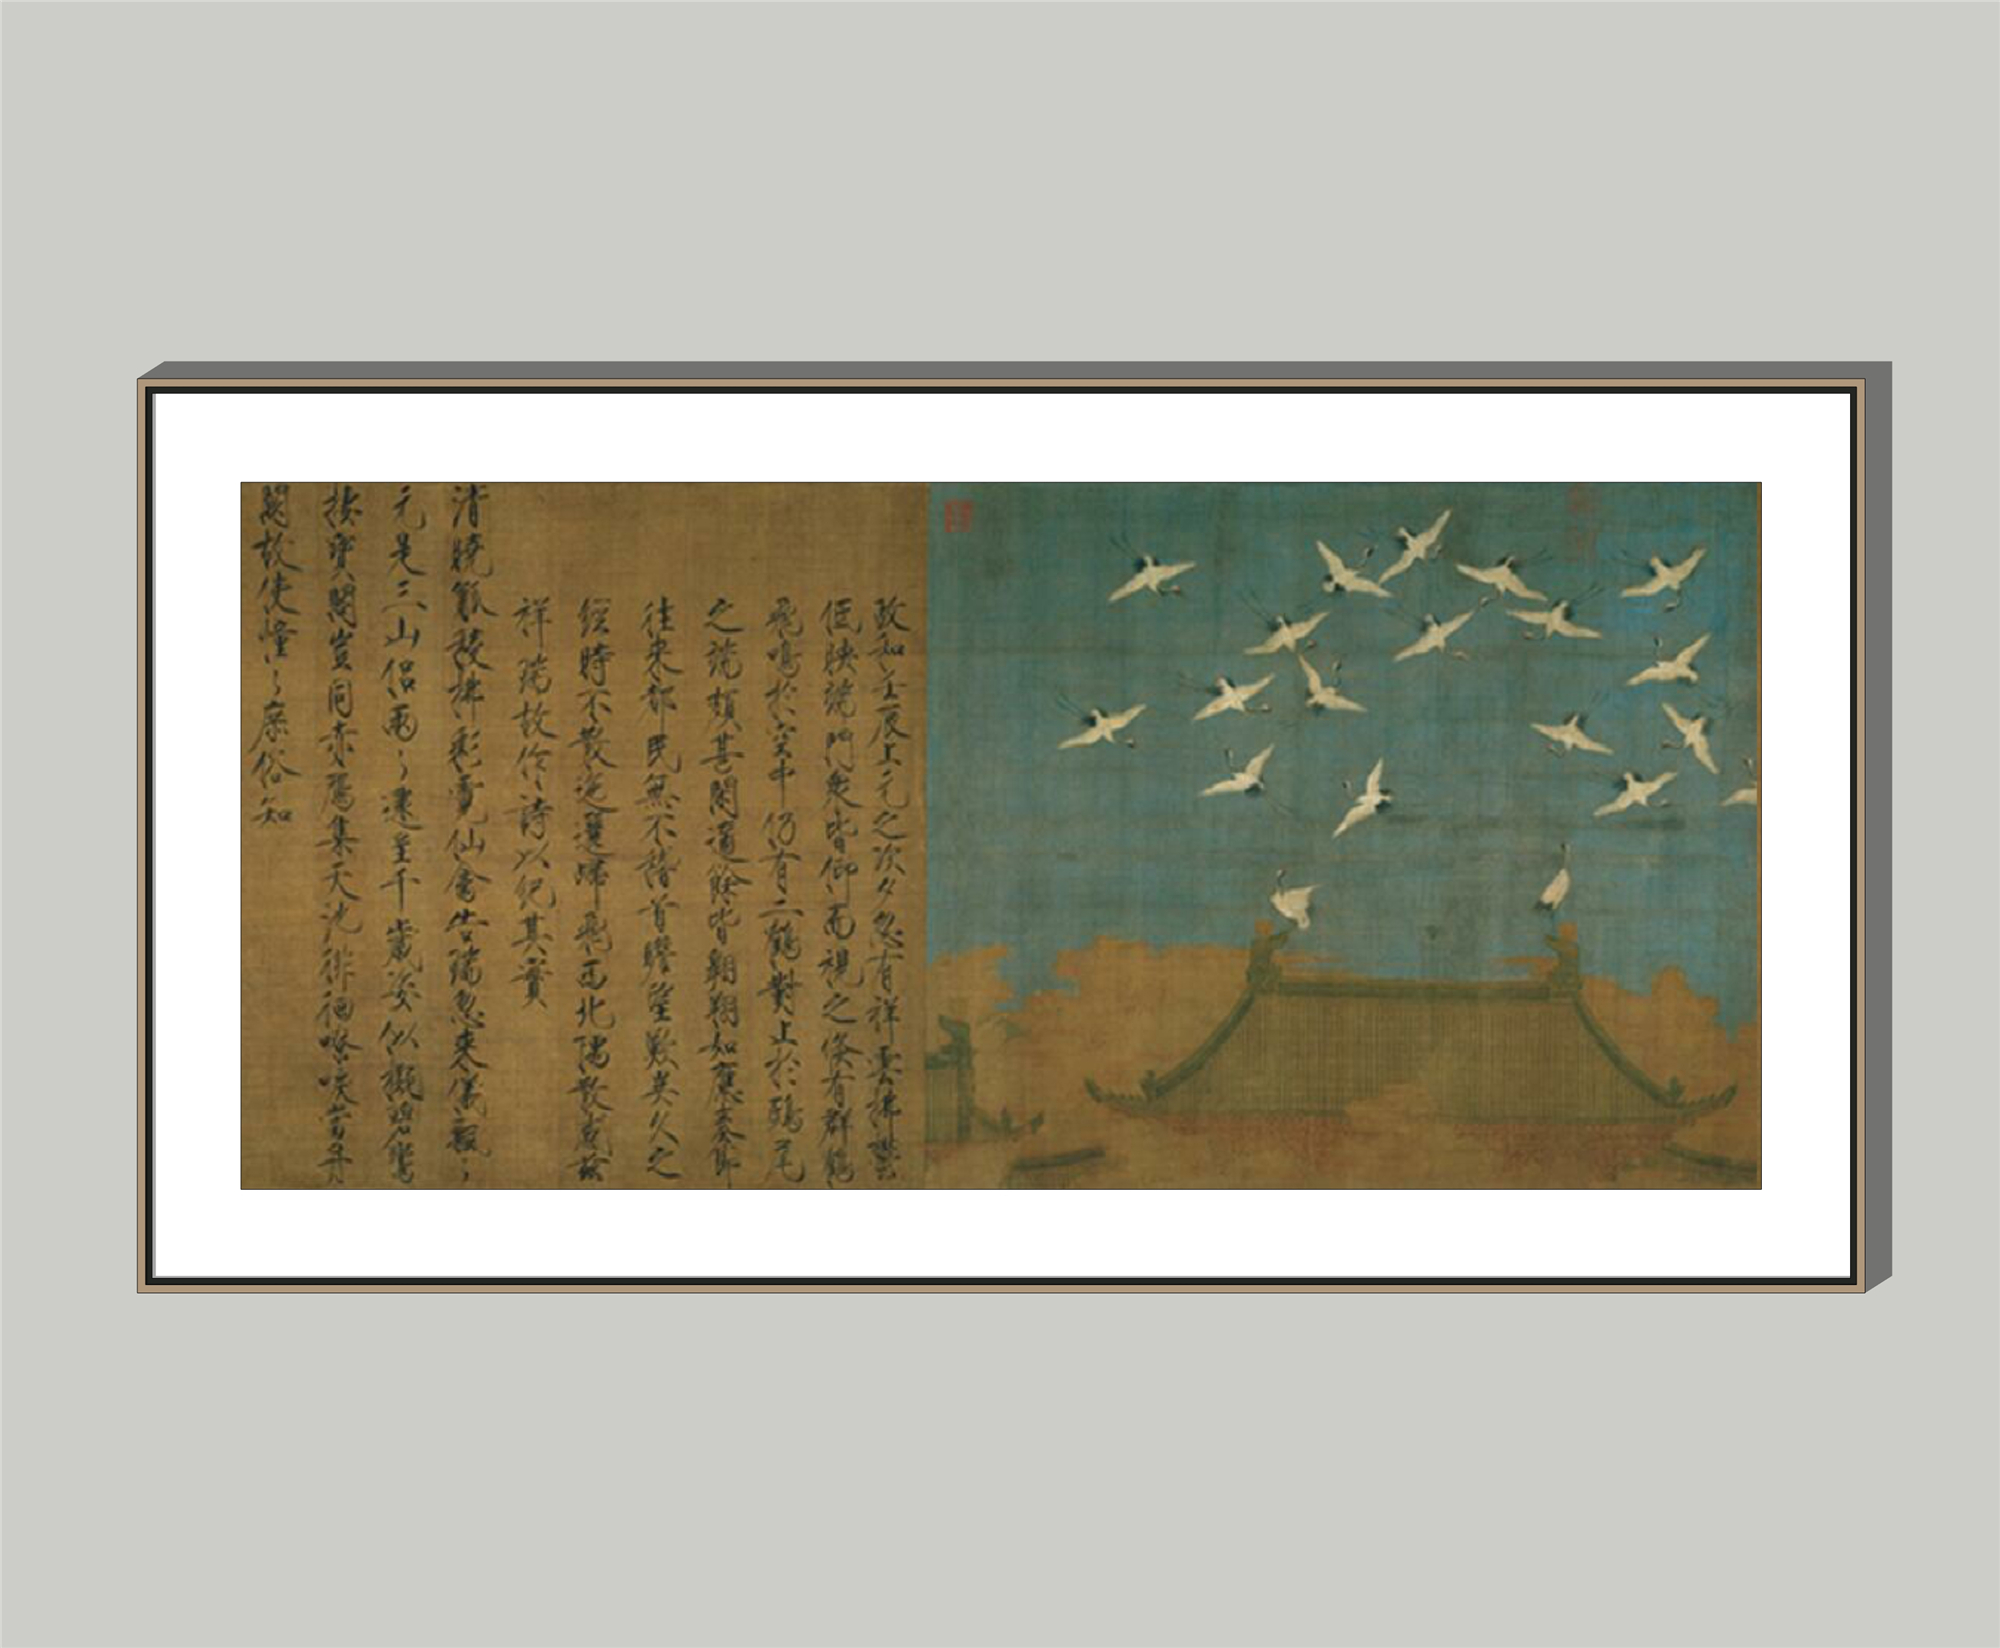 政和壬辰上元之次夕忽有祥雲拂鬱
低映端門衆皆仰而視之倏有群鶴
飛鳴於空中仍有二鶴對止於鴟尾
之端頗甚閒適餘皆翱翔如應奏節
往來都民無不稽首瞻望歎異久之
經時不散迤邐歸飛西北隅散感茲
祥瑞故作詩以紀其實
清曉觚稜拂彩霓仙禽告瑞忽來儀飄〻
元是三山侶兩〻還呈千歲姿似擬碧鸞
棲寶閣豈同赤鴈集天池徘徊嘹唳當丹
闕故使憧〻庶俗知